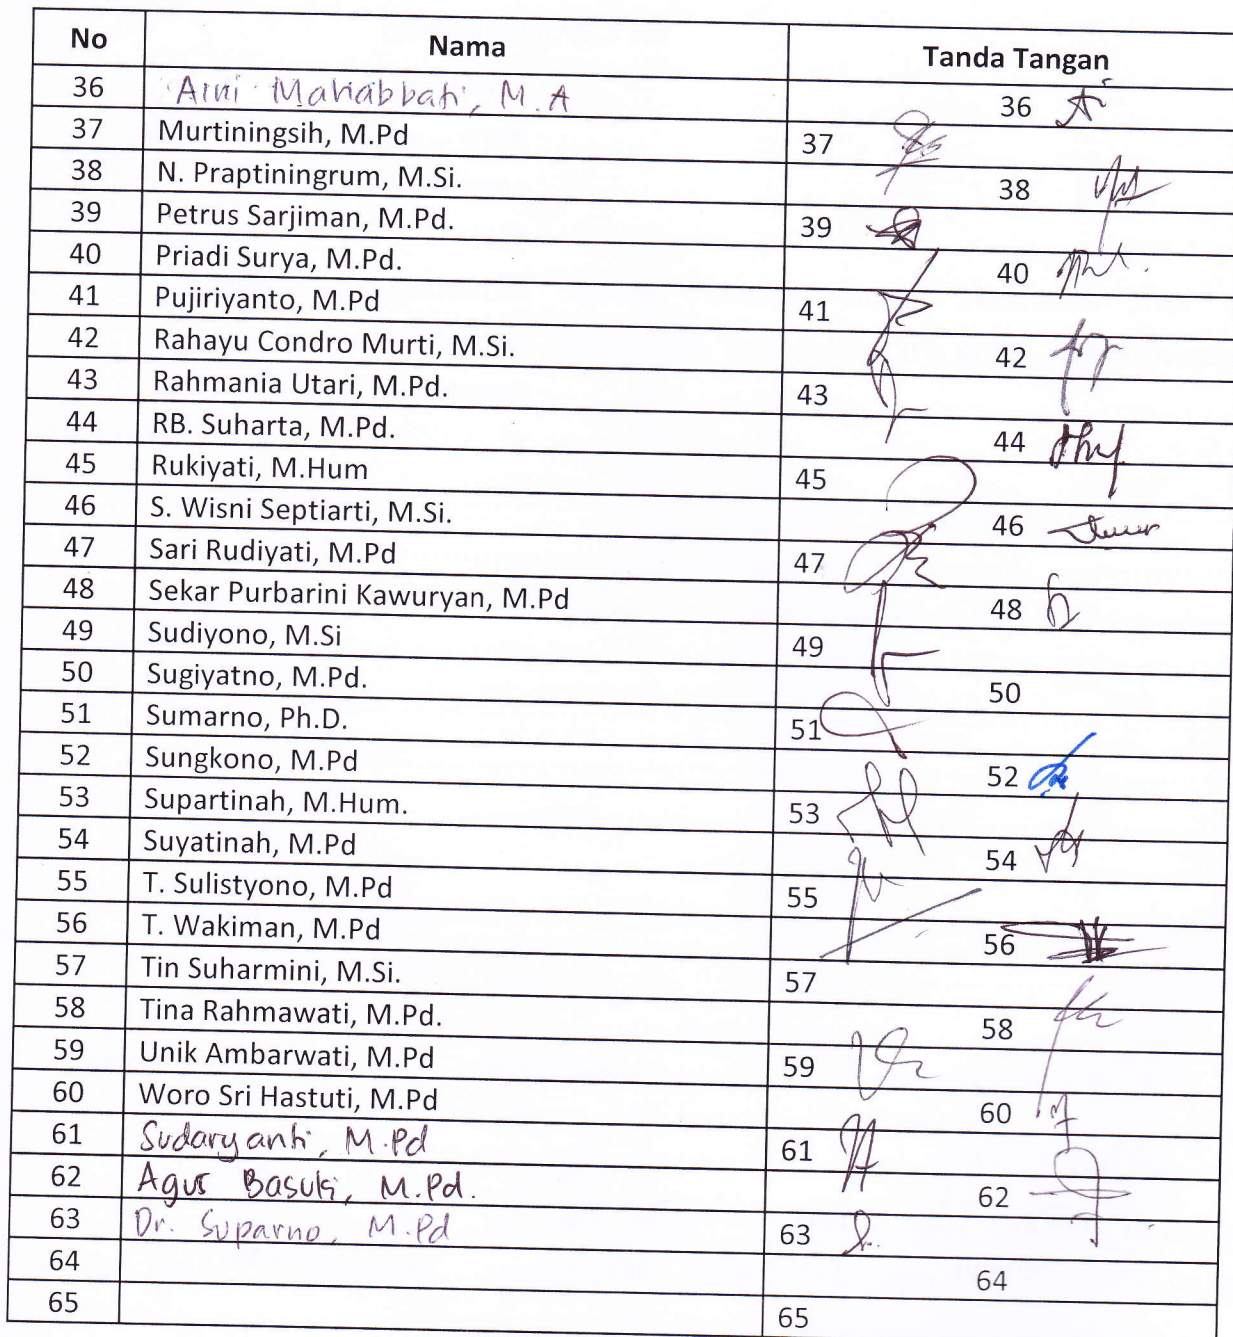 No Nama Tanda Tangan
36 Aini Mahabbati, M.A 36
37 Murtiningsih, M.Pd 37
38 N. Praptiningrum, M.Si. 38
39 Petrus Sarjiman, M.Pd. 39
40 Priadi Surya, M.Pd. 40
41 Pujiriyanto, M.Pd 41
42 Rahayu Condro Murti, M.Si. 42
43 Rahmania Utari, M.Pd. 43
44 RB. Suharta, M.Pd. 44
45 Rukiyati, M.Hum 45
46 S. Wisni Septiarti, M.Si. 46
47 Sari Rudiyati, M.Pd 47
48 Sekar Purbarini Kawuryan, M.Pd 48
49 Sudiyono, M.Si 49
50 Sugiyatno, M.Pd. 50
51 Sumarno, Ph.D. 51
52 Sungkono, M.Pd 52
53 Supartinah, M.Hum. 53
54 Suyatinah, M.Pd 54
55 T. Sulistyono, M.Pd 55
56 T. Wakiman, M.Pd 56
57 Tin Suharmini, M.Si. 57
58 Tina Rahmawati, M.Pd. 58
59 Unik Ambarwati, M.Pd 59
60 Woro Sri Hastuti, M.Pd 60
61 Sudaryanti, M.Pd 61
62 Agus Basuki, M.Pd. 62
63 Dr. Suparno, M.Pd 63
64 64
65 65